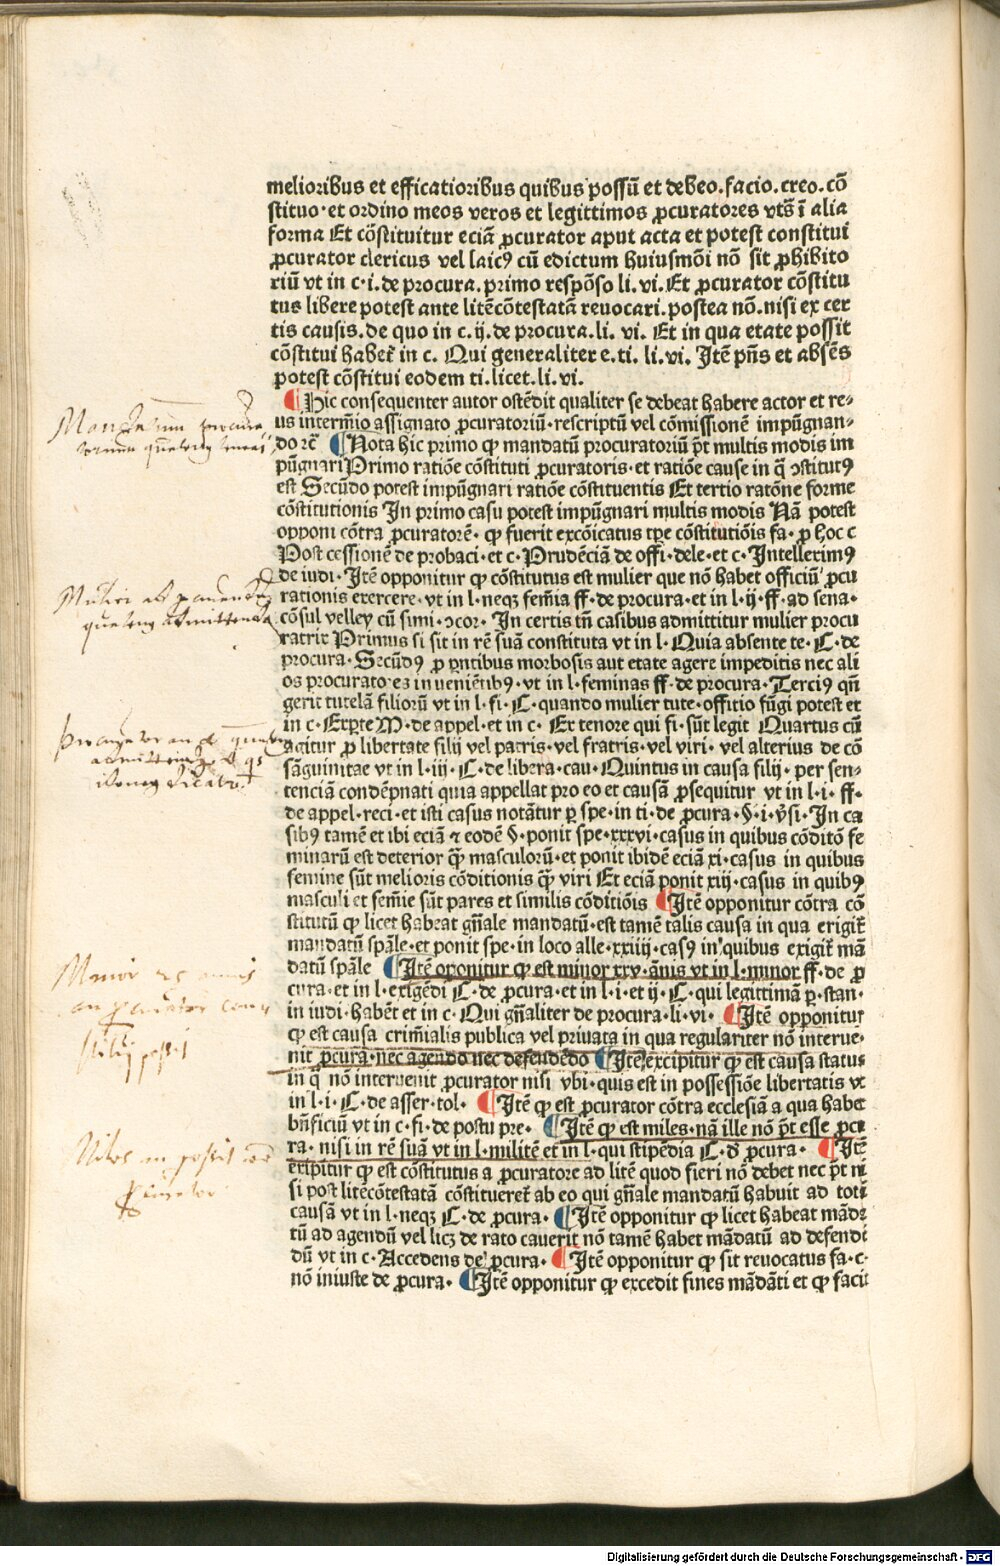 melioribus et efficatioribus quibus possū et debeo.facio.creo.cō
stituo·et ordino meos veros et legittimos ꝓcuratores vts̄ ī alia
forma Et cōstituitur eciā ꝓcurator aput acta et potest constitui
ꝓcurator clericus vel laicꝰ cū edictum huiusmōi nō sit ꝓhibito
riū vt in c·i.de procura.primo respōso li.vi.Et ꝓcurator cōstitu
tus libere potest ante litēcōtestatā reuocari.postea nō.nisi ex cer
tis causis.de quo in c.ij.de procura.li. vi. Et in qua etate possit
cōstitui habet̄ in c. Qui generaliter e.ti. li.vi. Itē pn̄s et absēs
potest cōstitui eodem ti.licet.li.vi.
¶Hic consequenter autor ostēdit qualiter se debeat habere actor et re⸗
us interm̄io assignato ꝓcuratoriū·rescriptū vel cōmissionē impūgnan⸗
do rc̄ ¶Nota hic primo ꝙ mandatū procuratoriū pt̄ multis modis im
pūgnari Primo ratiōe cōstituti ꝓcuratoris·et ratiōe cause in q̄ ↄstitutꝰ
est Secūdo potest impūgnari ratiōe cōstituentis Et tertio ratōne forme
cōstitutionis In primo casu potest impūgnari multis modis Nā potest
opponi cōtra ꝓcuratorē· ꝙ fuerit excōicatus tꝑe cōstitutiōis fa· ꝑ hoc c
Post cessionē de probaci·et c·Prudēciā de offi·dele·et c·Intelleximꝰ
de iudi·Itē opponitur ꝙ cōstitutus est mulier que nō habet officiū ꝓcu
rationis exercere·vt in l·neqꝫ fem̄ia ff·de procura·et in l·ij·ff·ad sena⸗
cōsul velley cū simi·ↄcor· In certis tn̄ casibus admittitur mulier procu
ratrix Primus si sit in rē suā constituta vt in l·Quia absente te·C·de
procura·Secūdꝰ ꝓ pn̄tibus morbosis aut etate agere impeditis nec ali
os procuratores inueniētibꝰ·vt in l·feminas ff·de procura·Terciꝰ qn̄
gerit tutelā filiorū vt in l·fi·C·quando mulier tute·offitio fūgi potest et
in c·Exꝑte M·de appel·et in c· Ex tenore qui fi·sūt legit Quartus cū
agitur ꝓ libertate filij vel patris·vel fratris·vel viri·vel alterius de cō
sāguinitae vt in l·iij·C·de libera·cau·Quintus in causa filij·per sen⸗
tenciam condēpnati quia appellat pro eo et causā ꝓsequitur vt in l·i·ff·
de appel·reci·et isti casus notātur ꝑ spe·in ti·de ꝓcura·§·i·v̄si·In ca
sibꝰ tamē et ibi eciā ⁊ eodē §·ponit spe·xxxvi·casus in quibus cōditō fe
minarū est deterior qꝫ̄ masculorū·et ponit ibidē eciā xi·casus in quibus
femine sūt melioris cōditionis qꝫ̄ viri Et eciā ponit xiij·casus in quibꝰ
masculi et fem̄ie sūt pares et similis cōditiōis ¶Itē opponitur cōtra cō
stitutū ꝙ licet habeat gn̄ale mandatū·est tamē talis causa in qua exigit̄
mandatū spāle·et ponit spe·in loco alle·xxiiij·casꝰ in quibus exigit̄ mā
datū spāle ¶Itē oponitur ꝙ est minor xxv·ānis vt in l·minor ff·de ꝓ
cura·et in l·exigēdi C·de ꝓcura·et in l·i·et ij·C·qui legittimā ꝑ·stan·
in iudi·habēt et in c·Qui gn̄aliter de procura·li·vi· ¶Itē opponitur
ꝙ est causa crim̄ialis publica vel priuata in qua regulariter nō interue⸗
nit ꝓcura·nec agendo nec defendēdo ¶Itē excipitur ꝙ est causa status
in q̄ nō interuenit ꝓcurator nisi vbi·quis est in possessiōe libertatis vt
in l·i·C·de asser·tol· ¶Itē ꝙ est ꝓcurator cōtra ecclesiā a qua habet
bn̄ficiū vt in c·fi·de postu pre· ¶Itē ꝙ est miles·nā ille nō pt̄ esse ꝓcu
ra·nisi in rē suā vt in l·militē et in l·qui stipēdia C·đ ꝓcura· ¶Itē
excipitur ꝙ est cōstitutus a ꝓcuratore ad litē quod fieri nō debet nec pt̄ ni
si post litēcōtestatā cōstitueret̄ ab eo qui gn̄ale mandatū habuit ad totā
causā vt in l·neqꝫ C·de ꝓcura· ¶Itē opponitur ꝙ licet habeat mādā
tū ad agendū vel licꝫ de rato cauerit nō tamē habet mādatū ad defendē
dū vt in c·Accedens de ꝓcura· ¶Itē opponitur ꝙ sit reuocatus fa·c·
nō iniuste de ꝓcura· ¶Itē opponitur ꝙ excedit fines mādāti et ꝙ facit
Mandatum
Mulier
admittenda
Minor
annis
an procurator
possit
Miles an possit
procurator
Digitalisierung gefördert durch die Deutsche Forschungsgemeinschaft - DFG